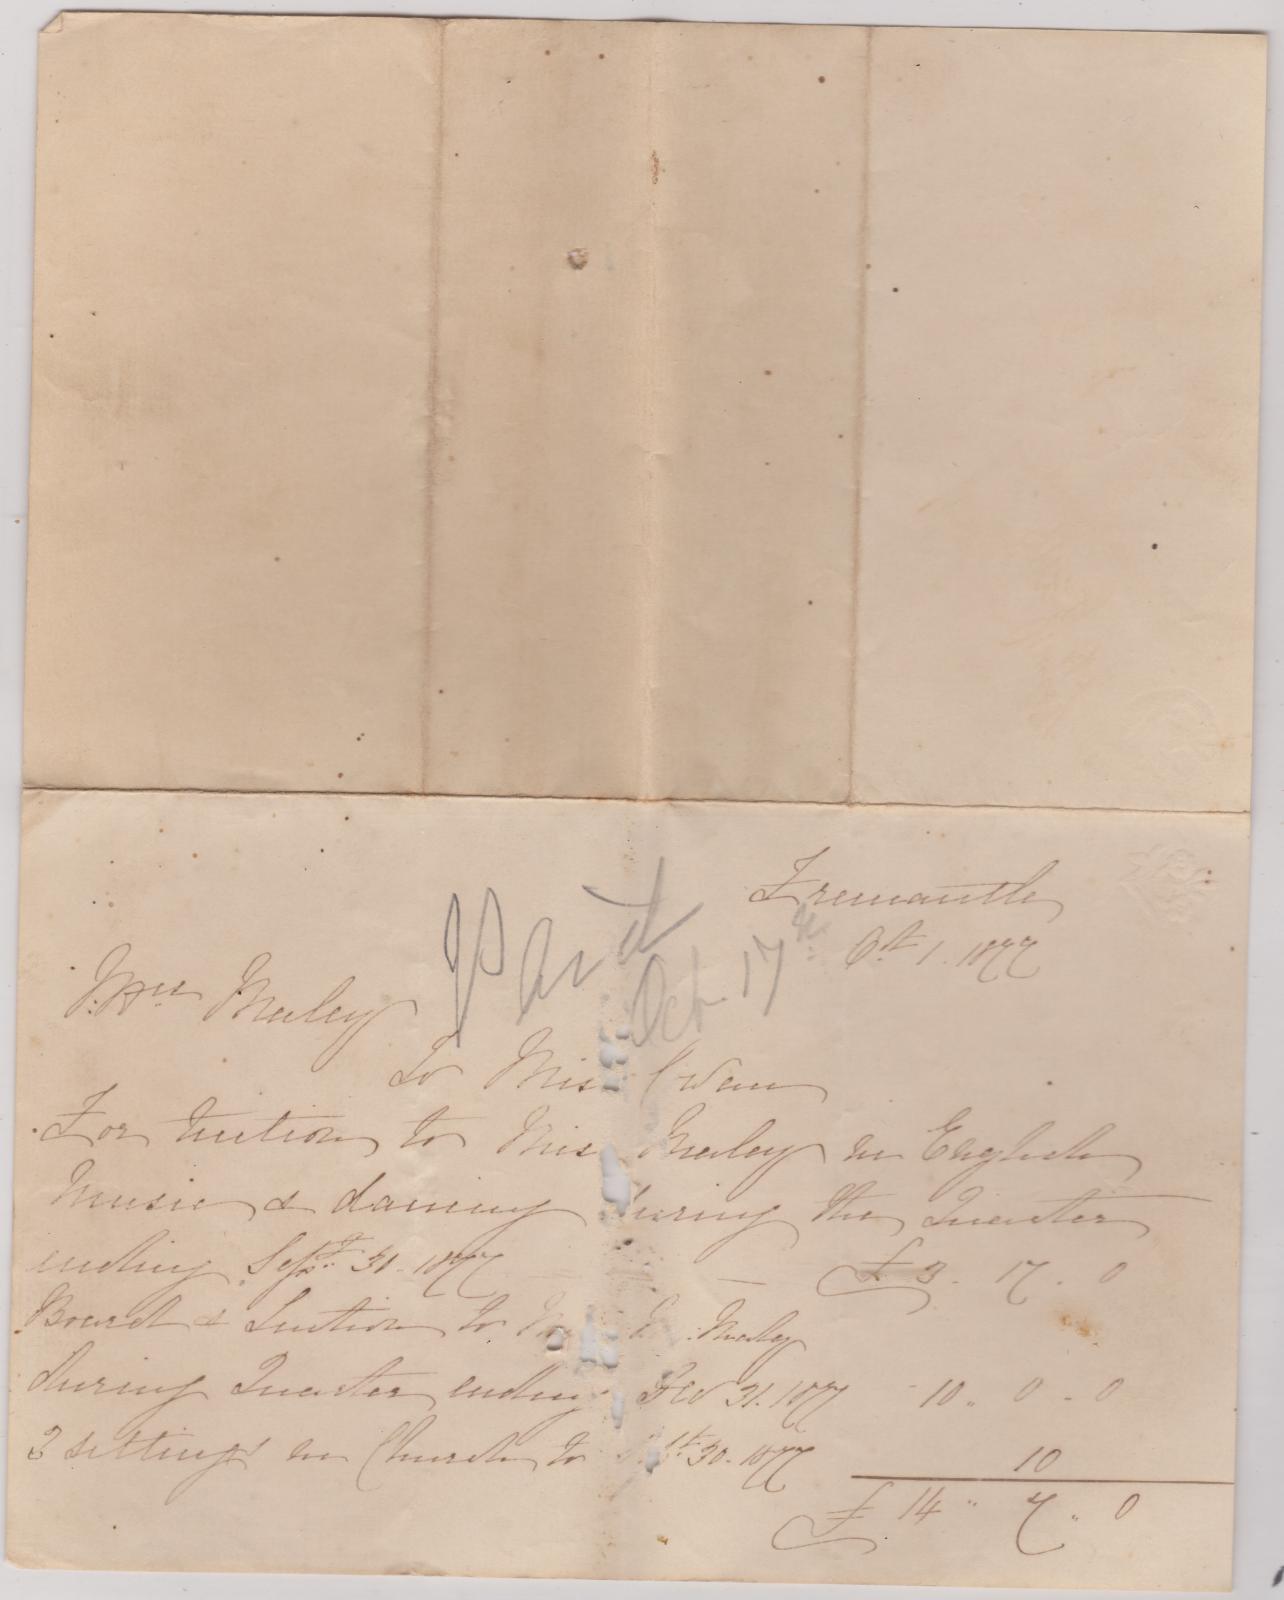 Fremantle
Oct 1. 1877
Paid
Oct 17th
Mrs Maley
To Miss Cowan
For tuition to Miss Maley in English
Music & dancing during the Quarter
ending Sept 30. 1877 £3. 17. 0
Board & Tuition to Maley
during Quarter ending 31. 1877 10. 0. 0
2 sittings in Church to Sept 30. 1877 10
£ 14 " 7 " 0